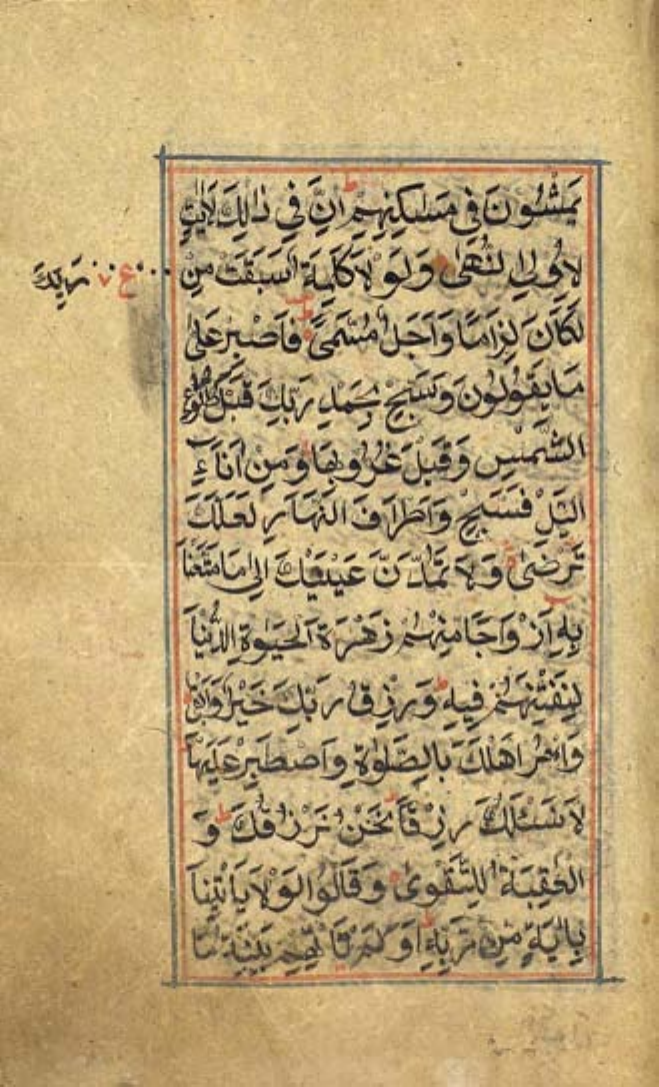 يَمْشُونَ فِي مَسٰكِنِهِمْ اِنَّ فِي ذٰالِكَ لَاٰيٰتٍ
لِاُولِي النُّهٰى وَلَوْلَا كَلِمَةٌ سَبَقَتْ مِنْ
رَبِّكَ
لَكَانَ لِزَامًا وَاَجَلٌ مُسَمًّى فَاصْبِرْ عَلٰى
مَا يَقُولُونَ وَسَبِّحْ بِحَمْدِ رَبِّكَ قَبْلَ طُلُوعِ
الشَّمْسِ وَقَبْلَ غُرُوبِهَا وَمِنْ اٰنَاۤءِ
الَّيْلِ فَسَبِّحْ وَاَطْرَافَ النَّهَارِ لَعَلَّكَ
تَرْضٰى وَلَا تَمُدَّنَّ عَيْنَيْكَ اِلٰى مَا مَتَّعْنَا
بِهِ اَزْوَاجًا مِنْهُمْ زَهْرَةَ الْحَيٰوةِ الدُّنْيَا
لِنَفْتِنَهُمْ فِيهِ وَرِزْقُ رَبِّكَ خَيْرٌ وَاَبْقٰى
وَاْمُرْ اَهْلَكَ بِالصَّلٰوةِ وَاصْطَبِرْ عَلَيْهَا
لَا نَسْئَلُكَ رِزْقًا نَحْنُ نَرْزُقُكَ وَ
الْعٰقِبَةُ لِلتَّقْوٰى وَقَالُوا لَوْلَا يَاْتِينَا
بِاٰيَةٍ مِنْ رَبِّهِ اَوَلَمْ تَاْتِهِمْ بَيِّنَةُ مَا